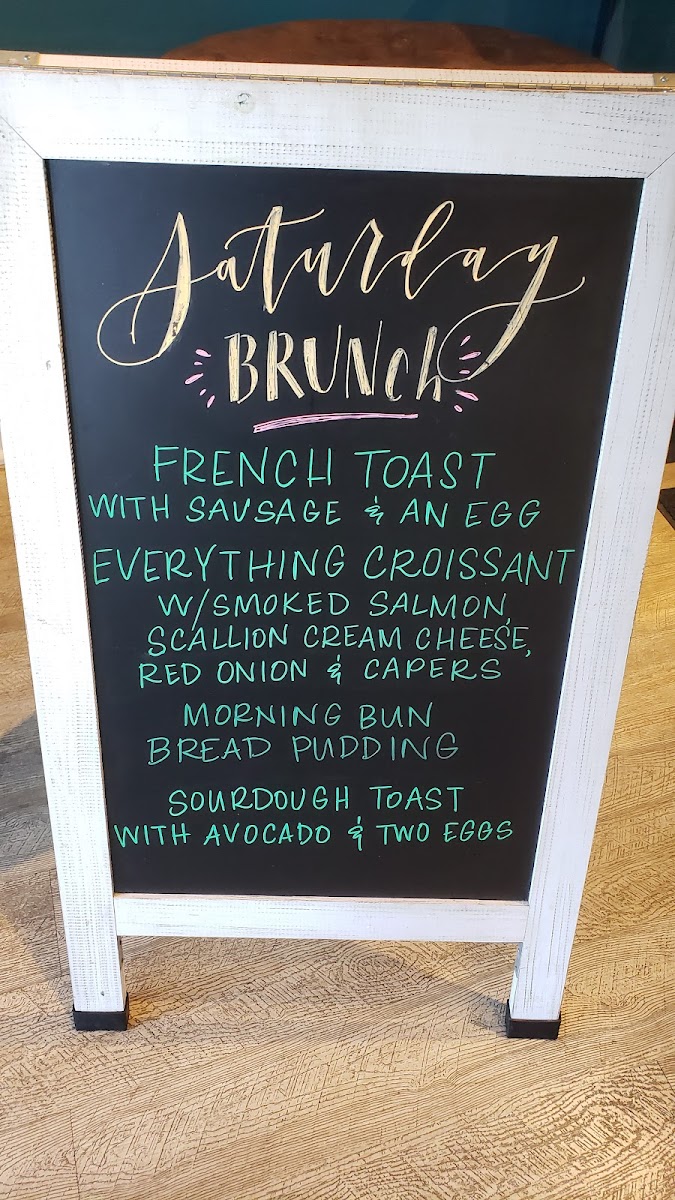 Saturday
BRUNch
FRENCH TOAST
WITH SAUSAGE & AN EGG
EVERYTHING CROISSANT
W/SMOKED SALMON,
SCALLION CREAM CHEESE,
RED ONION & CAPERS
MORNING BUN
BREAD PUDDING
SOURDOUGH TOAST
WITH AVOCADO & TWO EGGS